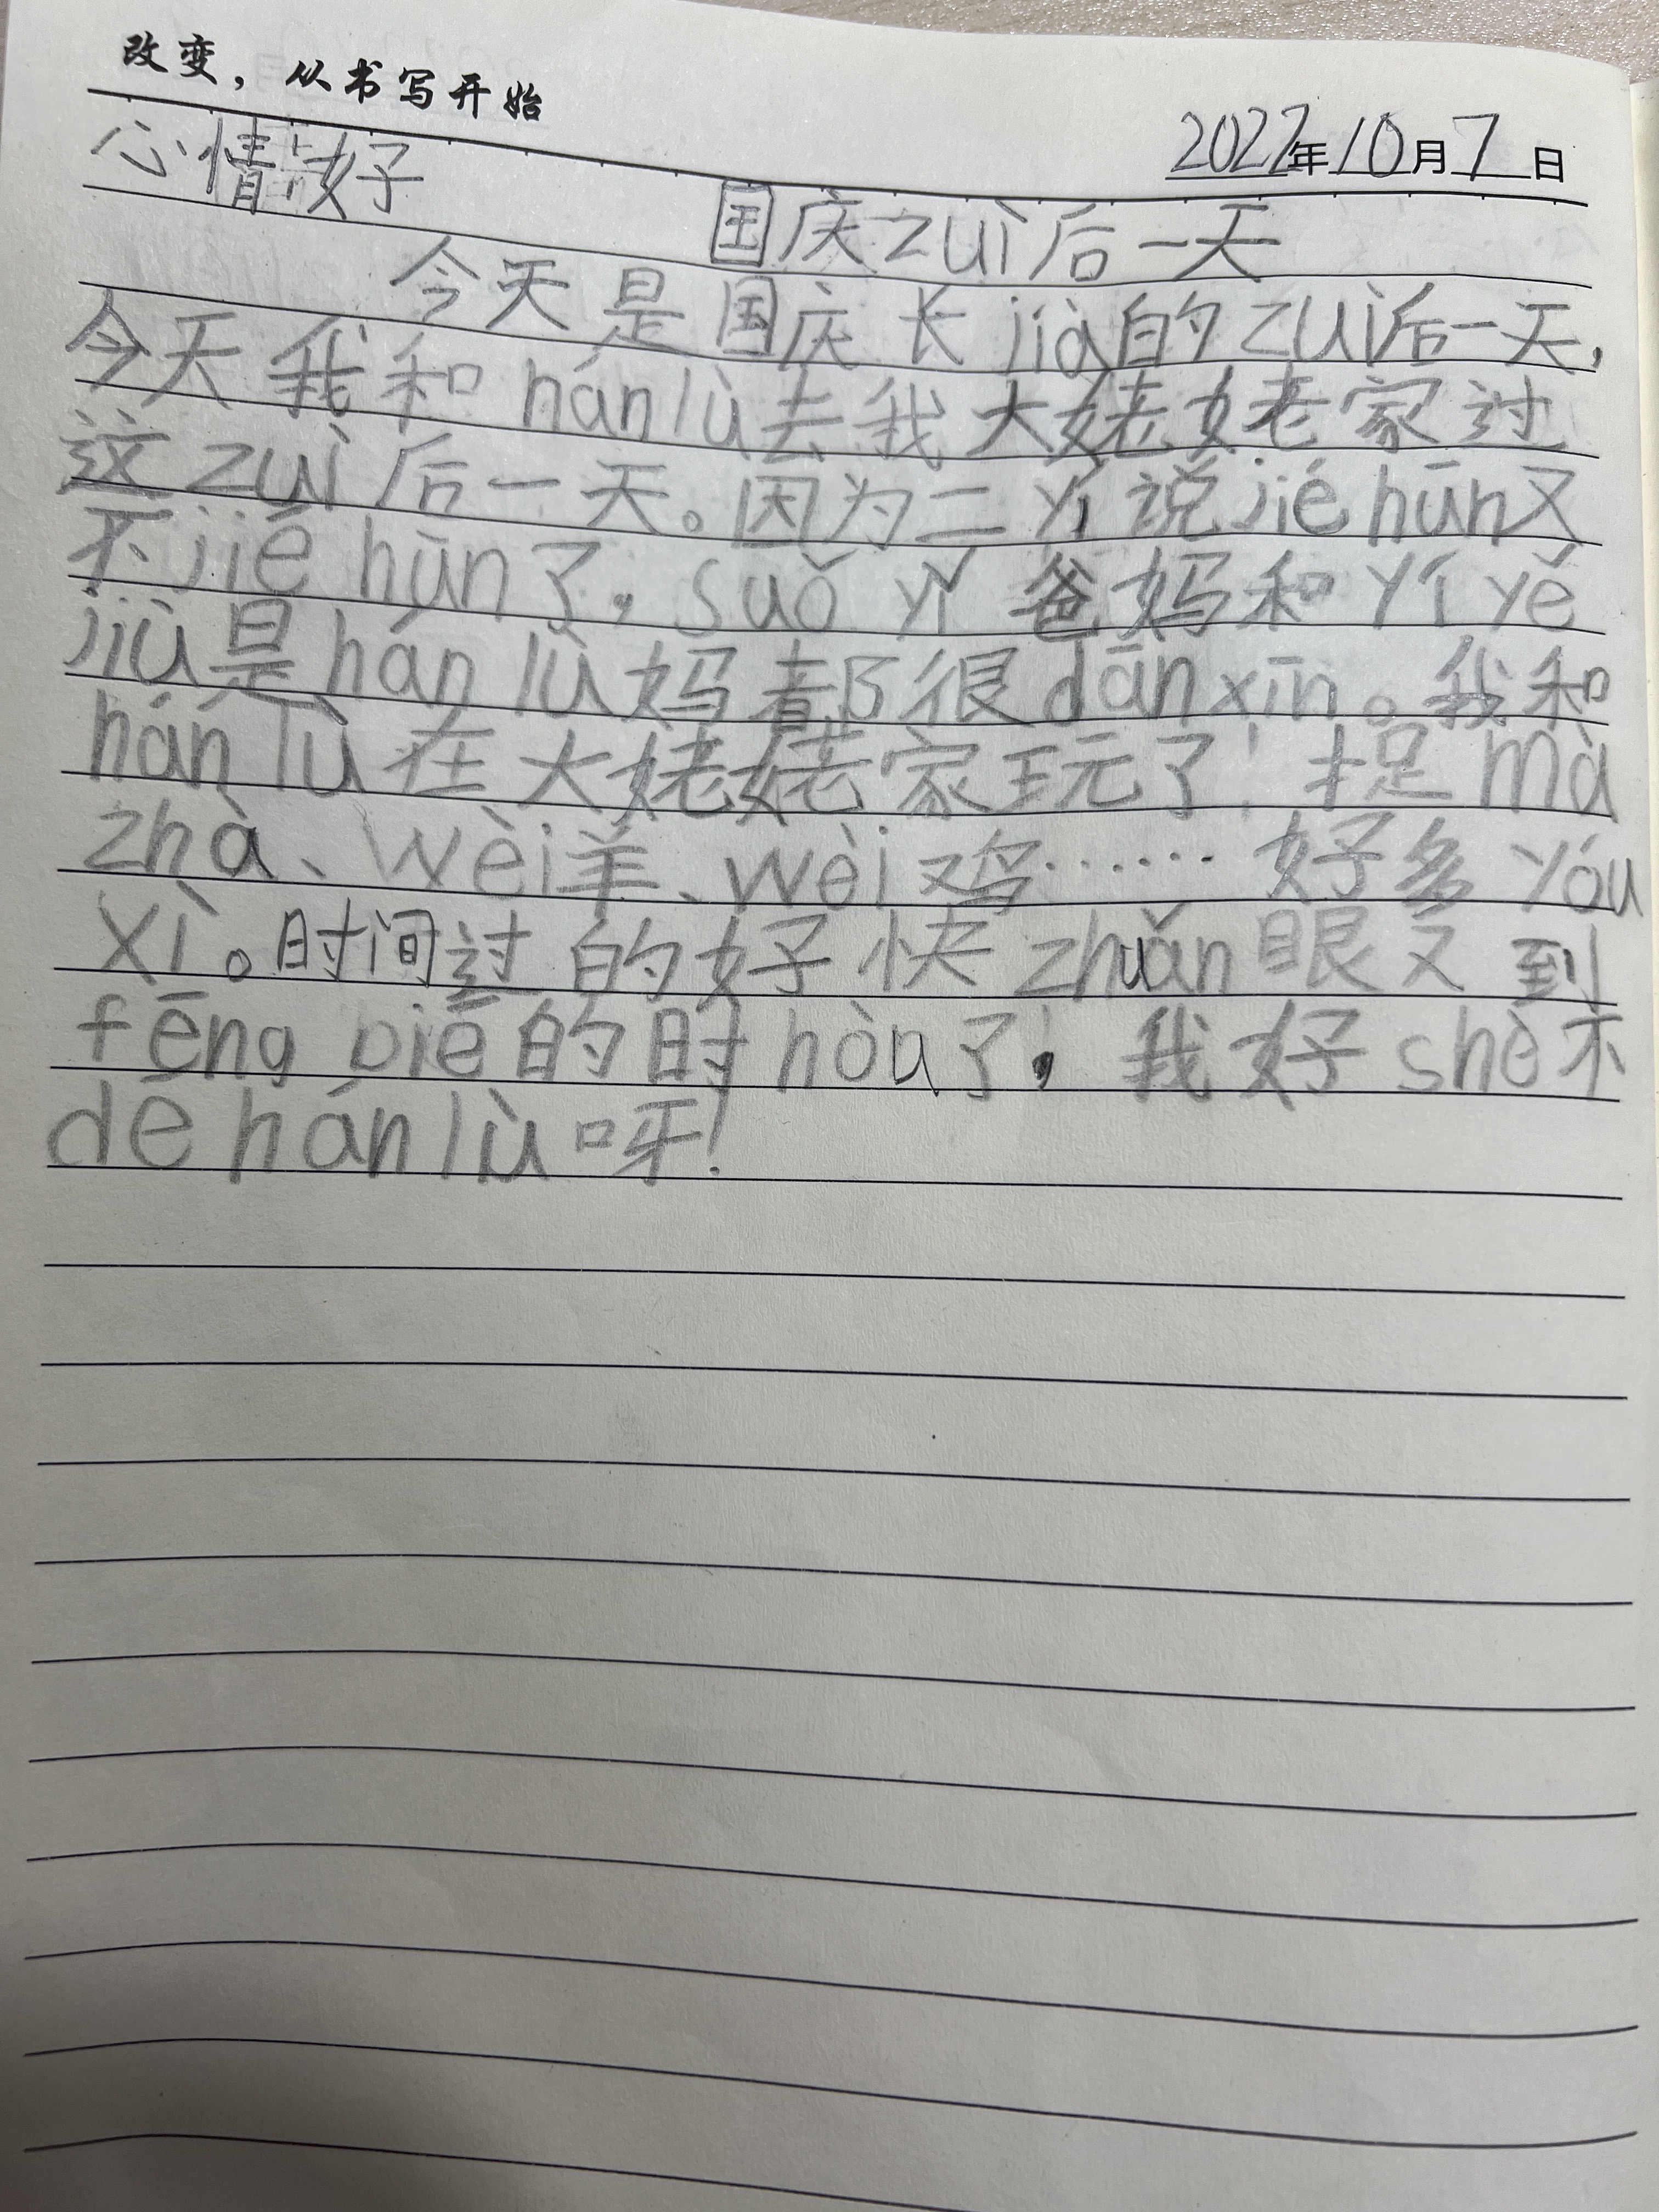 改变，从书写开始
2022年10月7日
心情:好
国庆zuì后一天
今天是国庆长jià的zuì后一天，
今天我和hánlù去我大姥姥家过
这zuì后一天。因为二yí说jiéhūn又
不jiéhūn了，suǒyǐ爸妈和yíyě
jiù是hánlù妈都很dānxīn。我和
hánlù在大姥姥家玩了！捉mà
zhà、wèi羊、wèi鸡……好多yóu
xì。时间过的好快zhuǎn眼又到
fēng bié的时hòu了，我好shě不
dé hánlù呀！